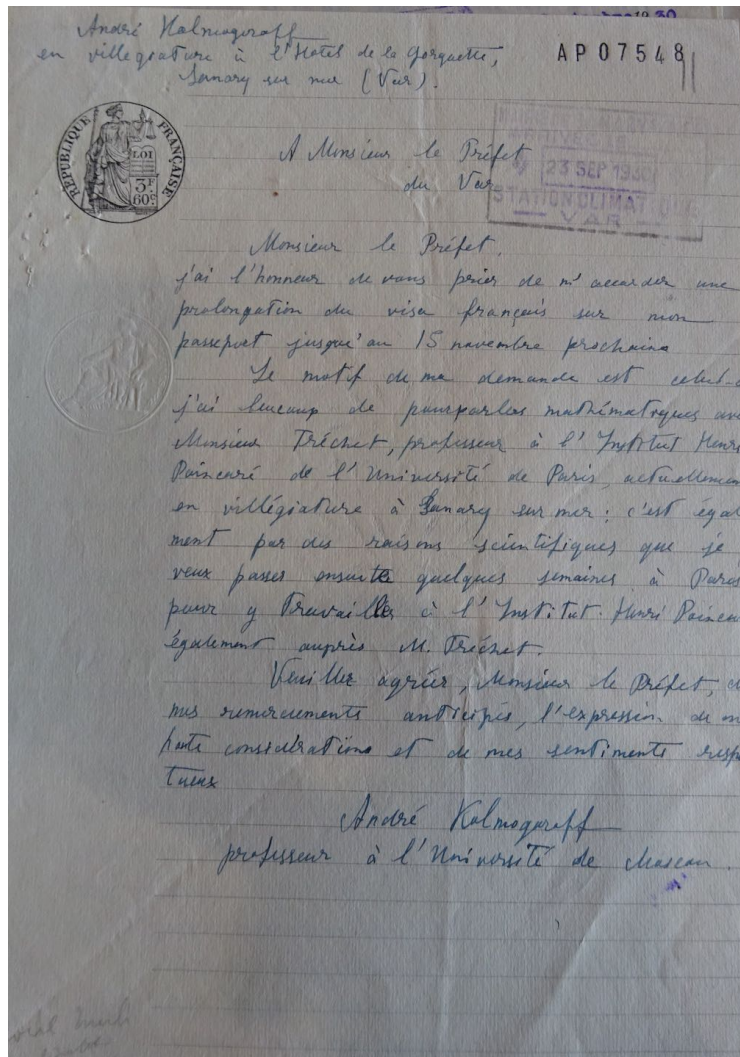 1930
André Kolmogoroff
en villégiature à l'Hotel de la Gorguette,
Sanary sur mer (Var).
AP07548
RÉPUBLIQUE FRANÇAISE
LOI
3F
60c
23 SEP 1930
STATION CLIMATIQUE
VAR
A Monsieur le Préfet
du Var
Monsieur le Préfet,
j'ai l'honneur de vous prier de m'accorder une
prolongation du visa français sur mon
passeport jusqu'au 15 novembre prochaine
Le motif de ma demande est celui-c
j'ai beucoup de pourparles mathématiques ave
Monsieur Fréchet, professeur à l'Institut Henri
Poincaré de l'Université de Paris, actuellemen
en villégiature à Sanary sur mer; c'est égal
ment par des raisons scientifiques que je
veux passer ensuite quelques semaines à Paris
pour y travailler à l'Institut Henri Poincar
également auprès M. Fréchet.
Veuillez agréer, Monsieur le Préfet,
mes remerciements anticipés, l'expression de m
haute considérations et de mes sentiments resp
tueux
André Kolmogoroff
professeur à l'Université de Moscou.